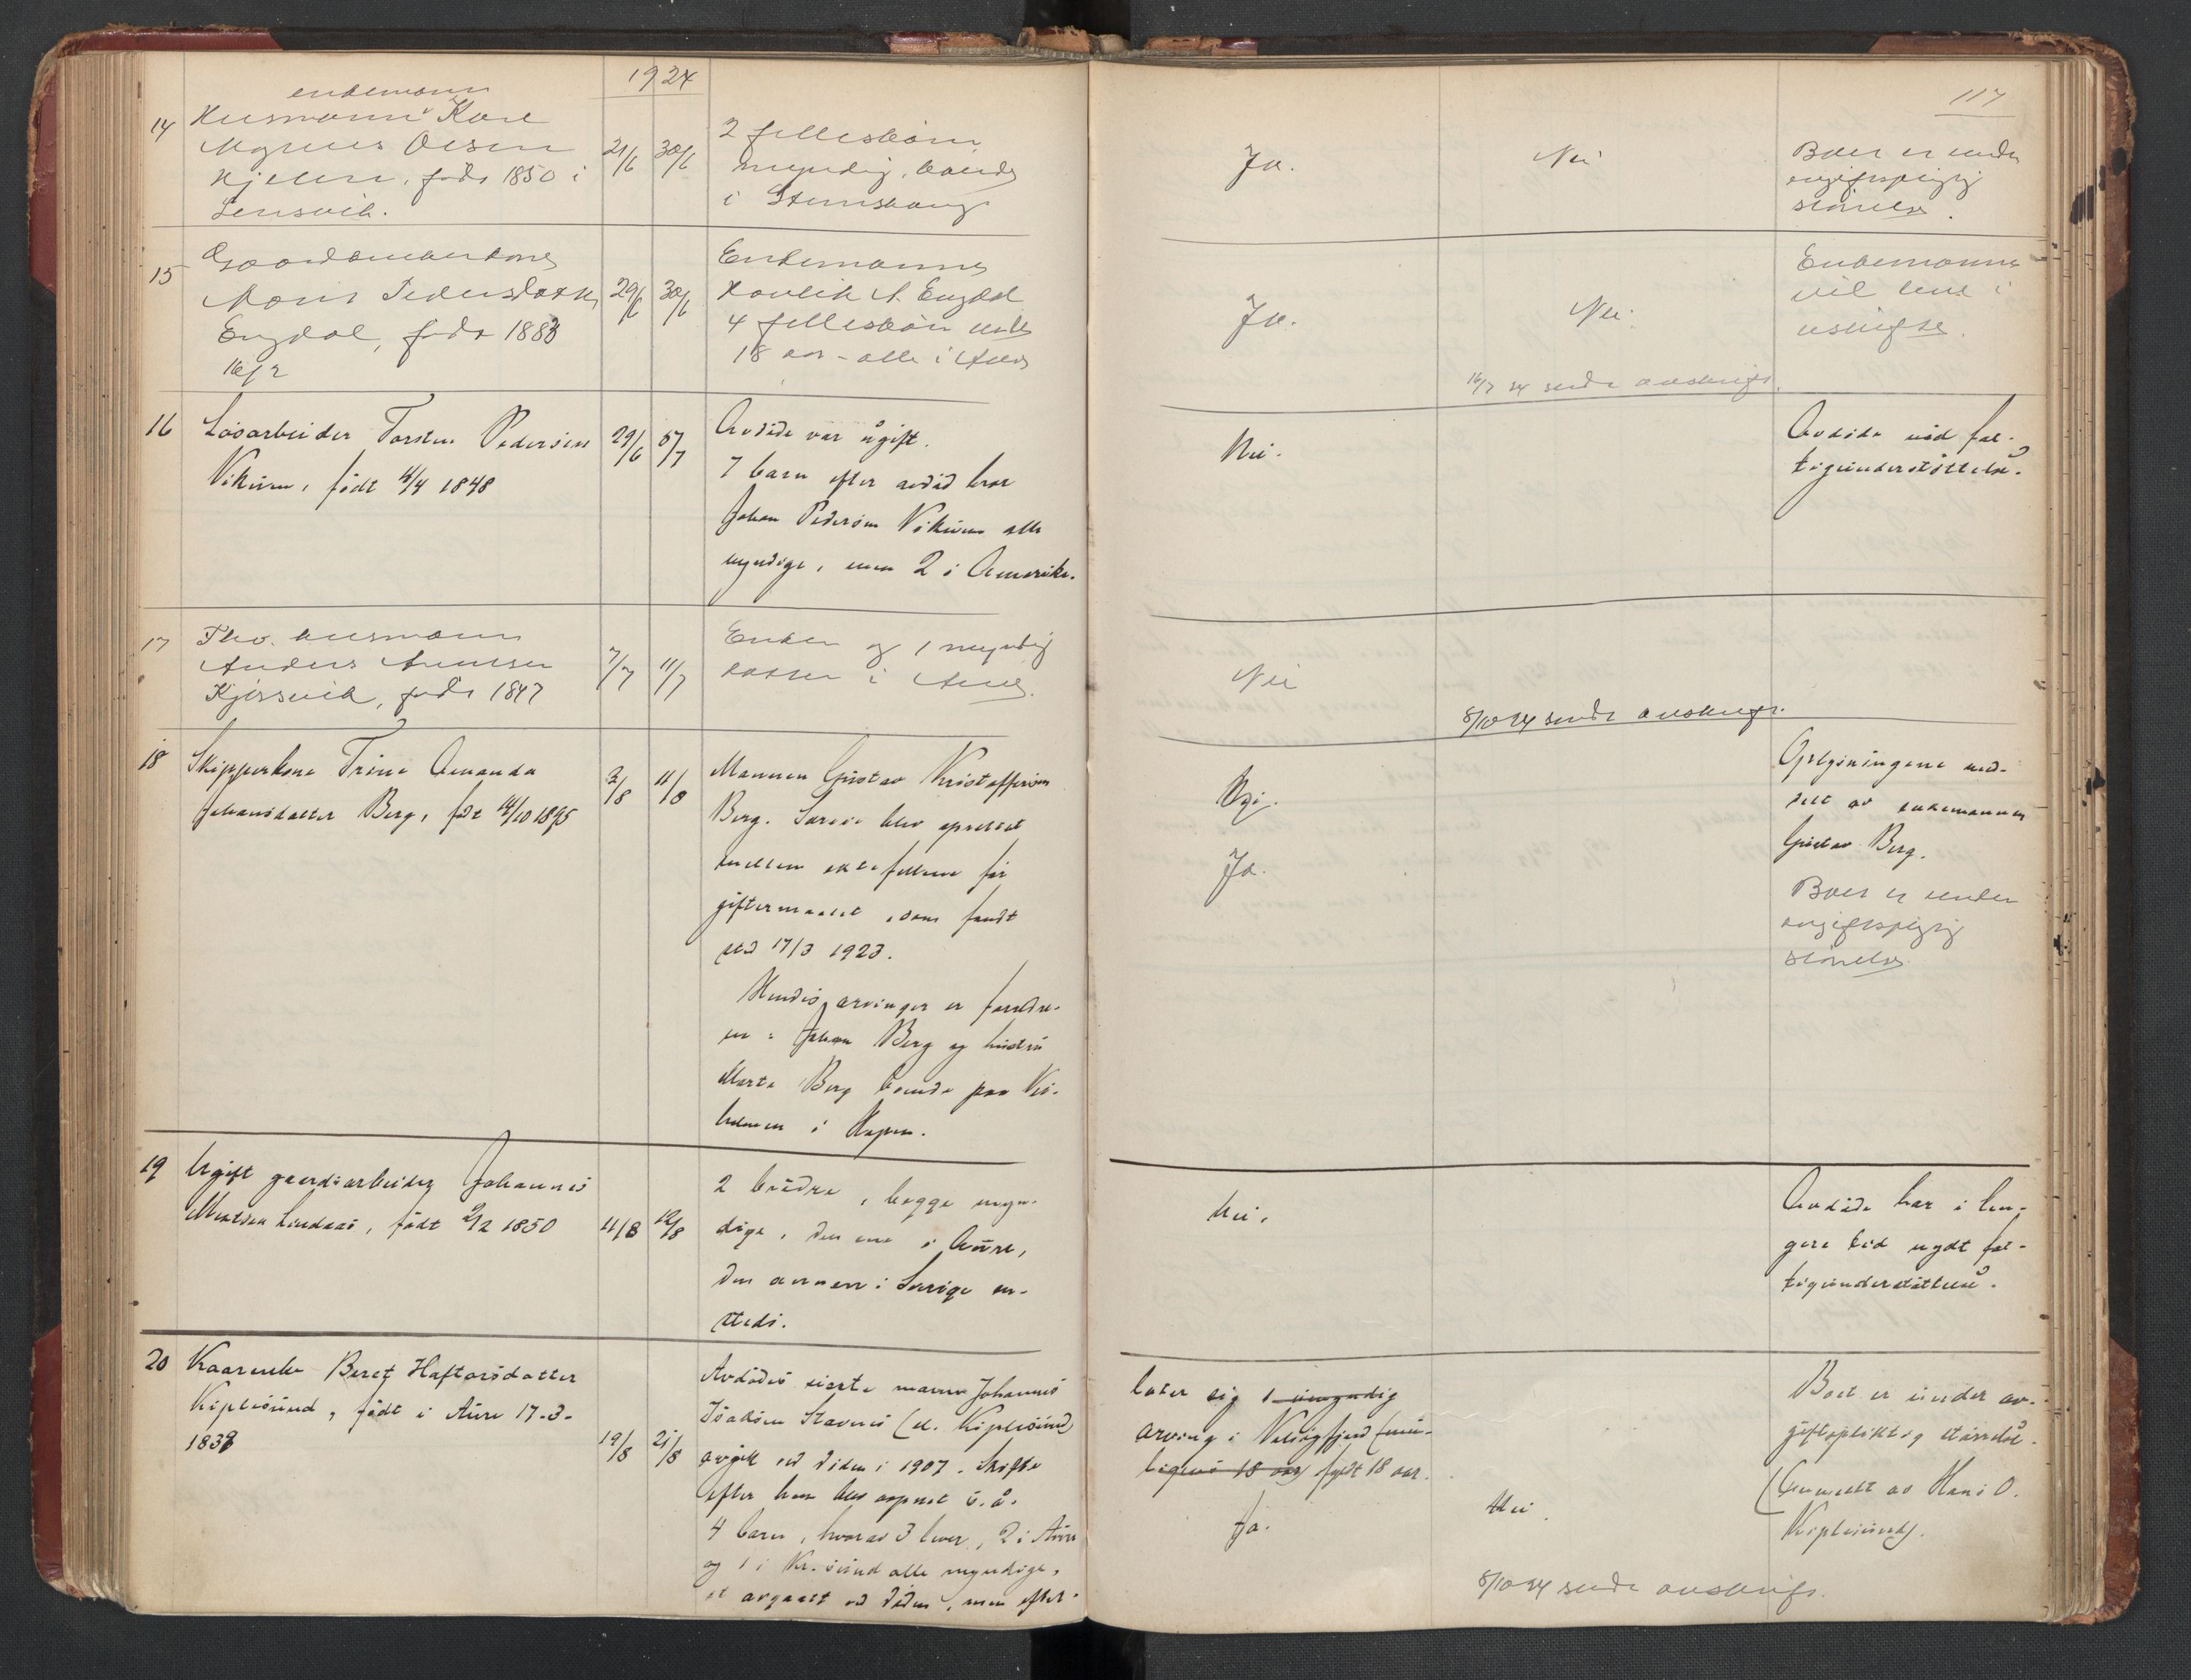 1924
117
enkemann
14 Husmann Karl
Magnus Olsen
født 1850 i
Lensvik.
21/6 30/6
2 fellesbarn
myndig, boende
i
Ja.
Nei
Boet er under
avgiftspligtig
størrelse.
15 Gaardmandskone
Pedersdatter
Engdal, født 1883
16/2
29/6 30/6
Enkemannen
Engdal
4 fellesbarn under
18 aar - alle i Aure
Ja.
Nei.
Enkemannen
vil sitte i
uskifte.
16/7 24 sendt avskrift.
16 Løsarbeider Torsten Pedersen
Vikum, født 4/4 1848
29/6 5/7
Avdøde var ugift.
7 barn efter avdød bror
Johan Pedersen Vikum alle
myndige, men 2 i Amerika.
Nei.
Avdøde nød fat-
tigunderstøttelse.
17 Fhv. husmann
Anders Arntsen
Kjørsvik, født 1847
7/7 11/7
Enken og 1 myndig
datter i Aure.
Nei
8/10 24 sendt avskrift.
18 Skipperkone Trine Amanda
Johansdatter Berg, født 14/10 1895
3/8 11/8
Mannen Gustav Kristoffersen
Berg. Særeie blev oprettet
mellem ektefellene før
giftermaalet, som fandt
sted 17/3 1923.
Hendes arvinger er foreldre-
ne: Johan Berg og hustru
Marta Berg boende paa Vei-
holmen i Hopen.
Nei.
Ja.
Oplysningene med-
delt av enkemannen
Gustav Berg.
Boet er under
avgiftspligtig
størrelse.
19 Ugift gaardsarbeider Johannes
Mentsen Lindaas, født 9/2 1850
4/8 12/8
2 brødre, begge myn-
dige, den ene i Aure,
den annen i Sverige en-
steds.
Nei.
Avdøde har i len-
gere tid nydt fat-
tigunderstøttelse.
20 Kaarenke Beret Haftorsdatter
Kiplesund, født i Aure 17-3-
1838
19/8 21/8
Avdødes sidste mann Johannes
Isaksen Stavnes (el. Kiplesund)
avgik ved døden i 1907. Skifte
efter ham blev aapnet s. å.
4 barn, hvorav 3 lever, 2 i Aure
og 1 i Kr.sund alle myndige,
et avgaatt ved døden, men efter-
later sig 1 umyndig
arving i Valsøyfjord (mu-
ligens 18 aar) fyldt 18 aar.
Ja.
Nei
Boet er under av-
giftspliktig størrelse.
(Anmeldt av Hans O.
Kiplesund).
8/10 24 sendt avskrift.